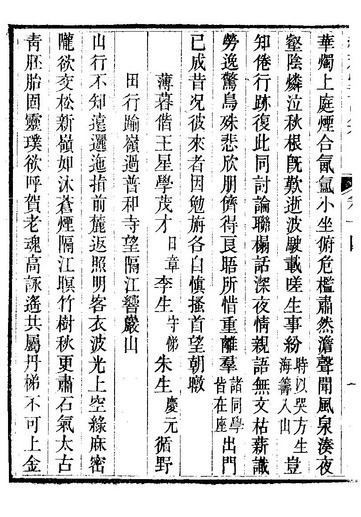 華燭上庭煙合氤氳小坐俯危檻肅然澹聲聞風泉湊夜
壑陰燐泣秋根既歎逝波駛載嗟生事紛時以哭方生海籌入山豈
知倦行跡復此同討論聯榻話深夜情親語無文枯薪識
勞逸驚鳥殊悲欣朋儕得良晤所惜重離羣諸同學皆在座出門
已成昔况彼來者因勉旃各自愼搔首望朝暾
薄暮偕王星學茂才日章李生守俤朱生慶元循野
田行踰嶺過普和寺望隔江響巖山
山行不知遠邐迤指前麓返照明客衣波光上空綠麻密
隴欲交松新嶺如沐蒼煙隔江暝竹樹秋更肅石氣太古
靑胚胎固靈璞欲呼賀老魂高詠遙共屬丹梯不可上金